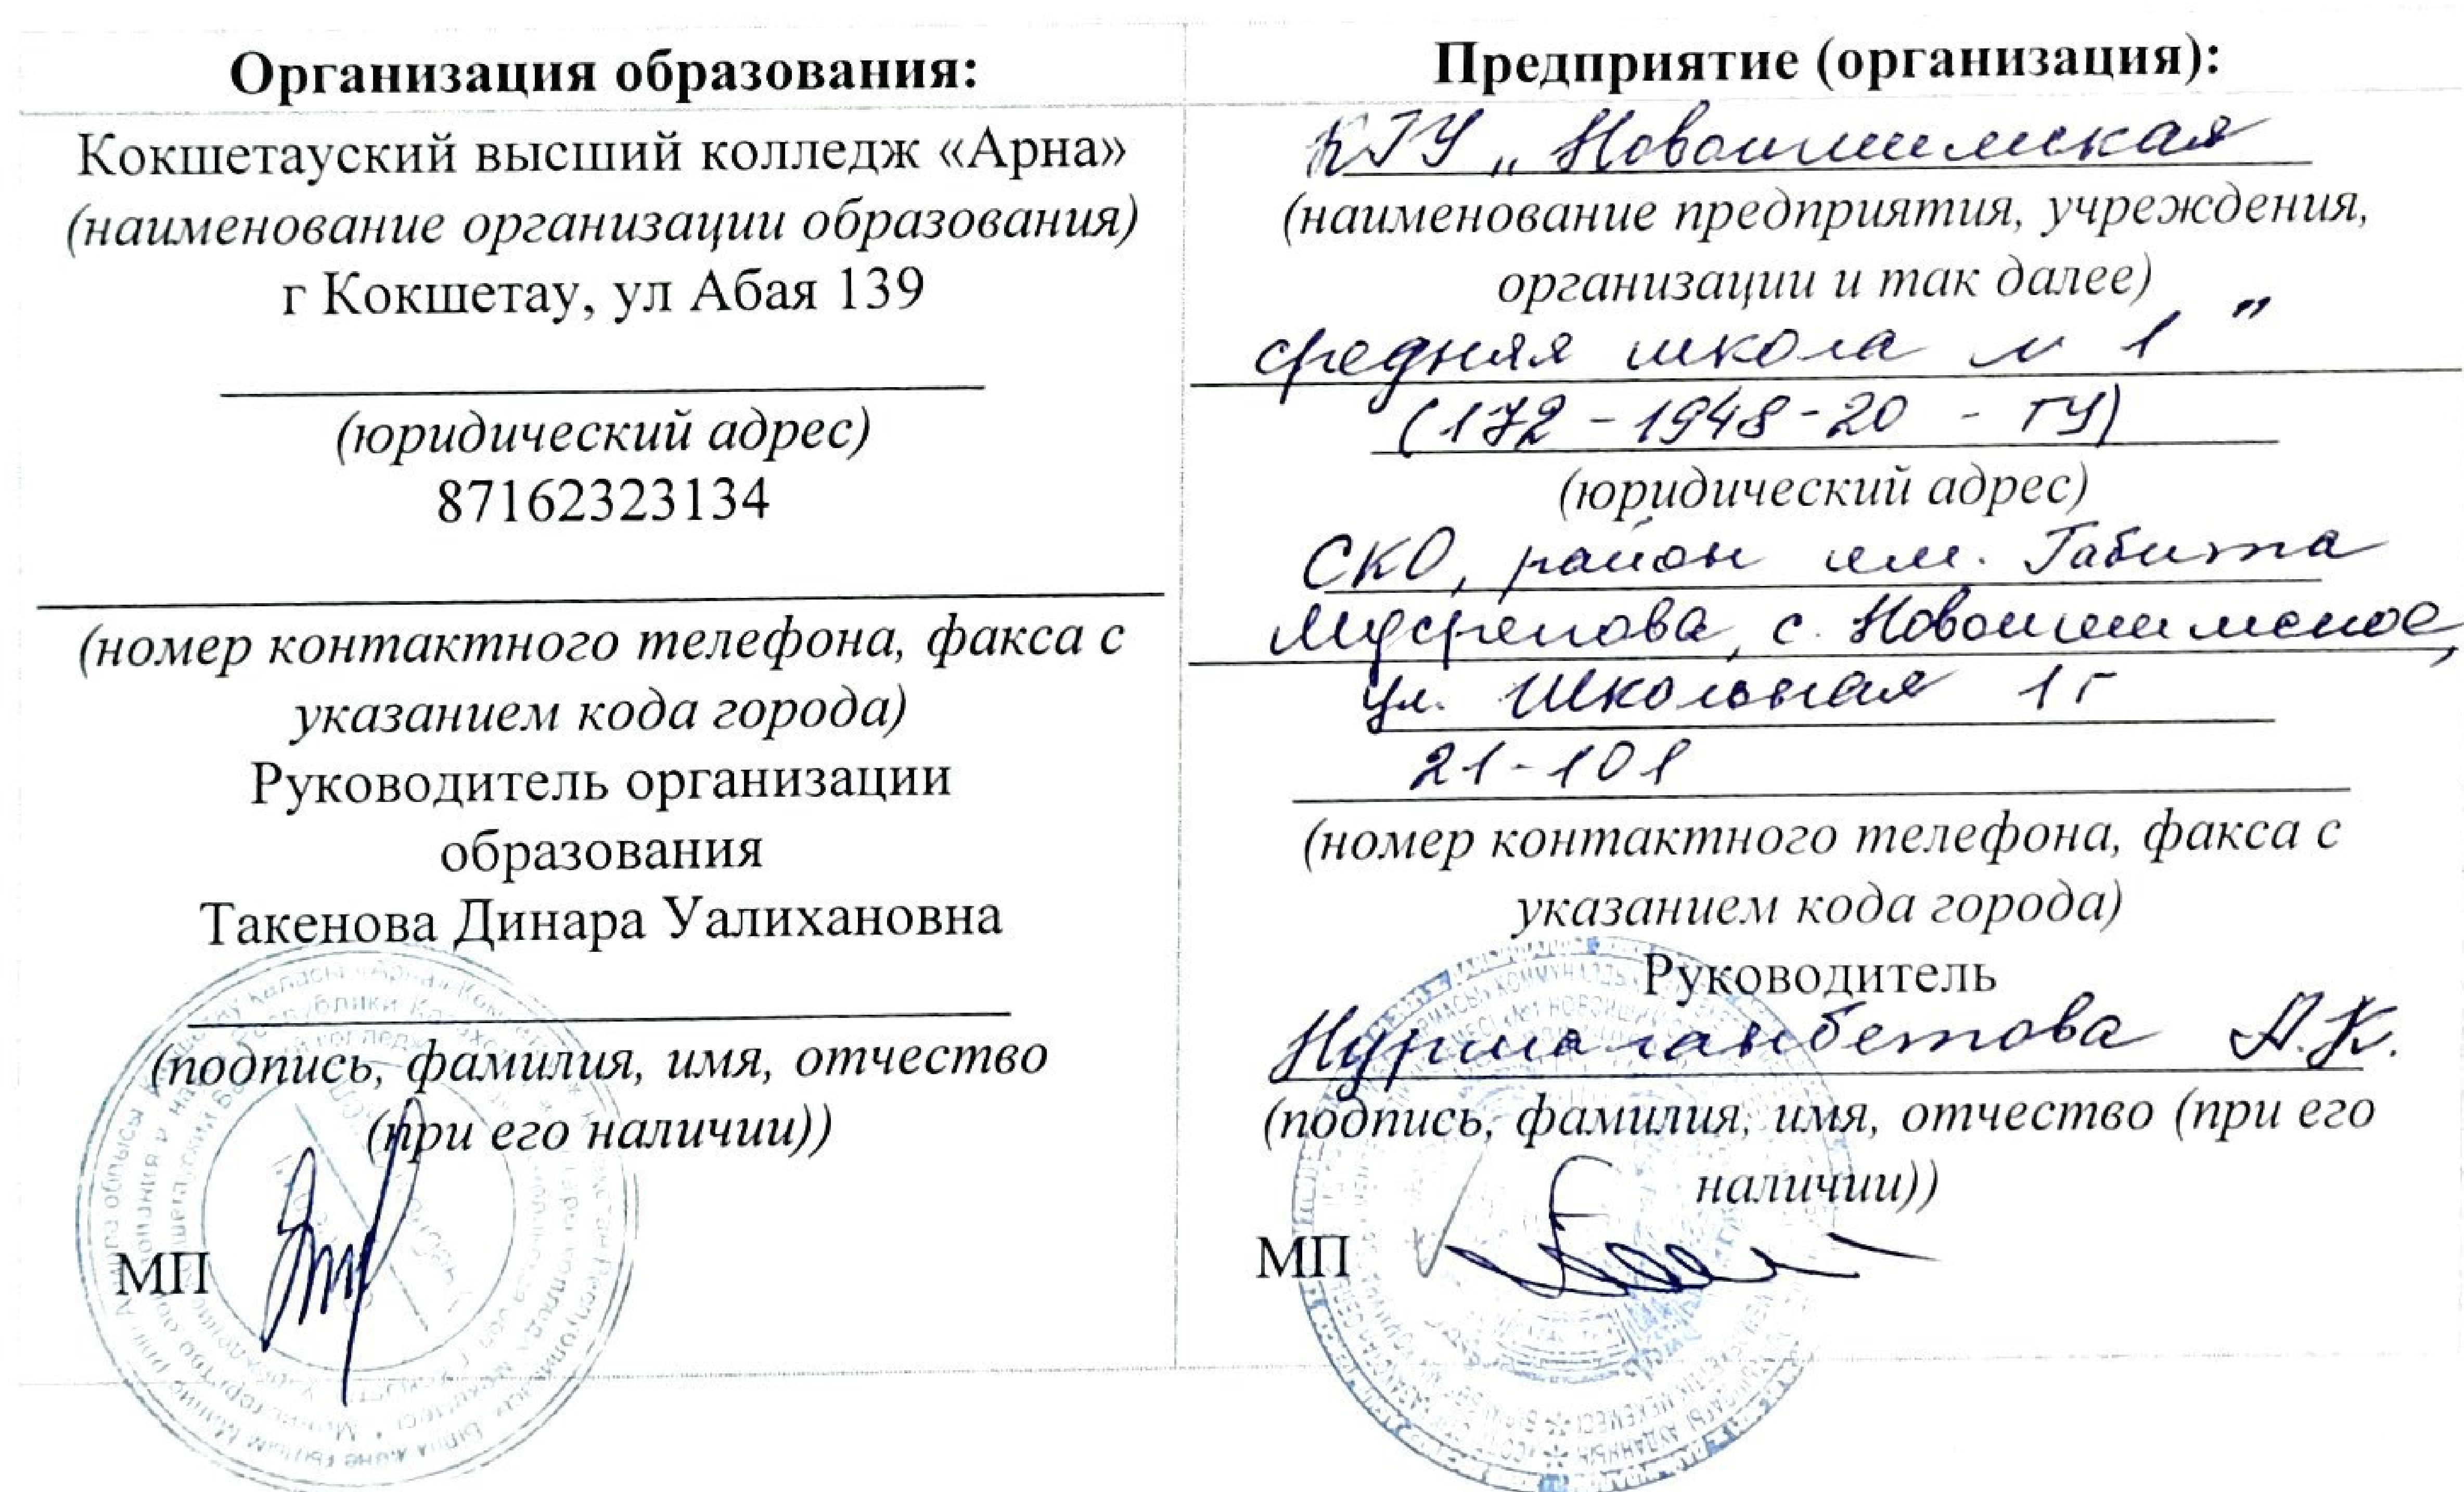 Организация образования:
Кокшетауский высший колледж «Арна»
(наименование организации образования)
г Кокшетау, ул Абая 139
(юридический адрес)
87162323134
(номер контактного телефона, факса с
указанием кода города)
Руководитель организации
образования
Такенова Динара Уалихановна
(подпись, фамилия, имя, отчество
(при его наличии))
МП
Предприятие (организация):
КГУ „Новоишимская
(наименование предприятия, учреждения,
организации и так далее)
средняя школа № 1"
(172-1948-20 - ГУ)
(юридический адрес)
СКО, район им. Габита
Мусрепова, с. Новоишимское,
ул. Школьная 1г
21-101
(номер контактного телефона, факса с
указанием кода города)
Руководитель
Нурмаганбетова А.К.
(подпись, фамилия, имя, отчество (при его
наличии))
МП